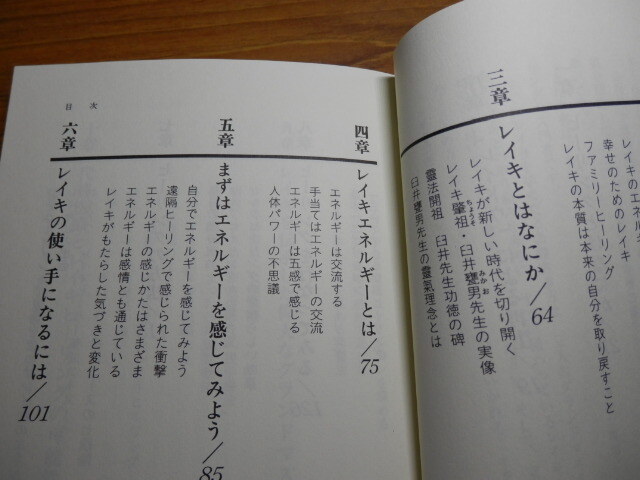 レイキのエネルギー
幸せのためのレイキ
ファミリーヒーリング
レイキの本質は本来の自分を取り戻すこと
三章 レイキとはなにか/64
レイキが新しい時代を切り開く
レイキ肇祖・臼井甕男先生の実像
ちょうそ
みかお
靈法開祖 臼井先生功徳の碑
臼井甕男先生の靈氣理念とは
四章 レイキエネルギーとは/75
エネルギーは交流する
手当てはエネルギーの交流
エネルギーは五感で感じる
人体パワーの不思議
五章 まずはエネルギーを感じてみよう/85
自分でエネルギーを感じてみよう
遠隔ヒーリングで感じられた衝撃
エネルギーの感じかたはさまざま
エネルギーは感情とも通じている
レイキがもたらした気づきと変化
目次
六章 レイキの使い手になるには/101